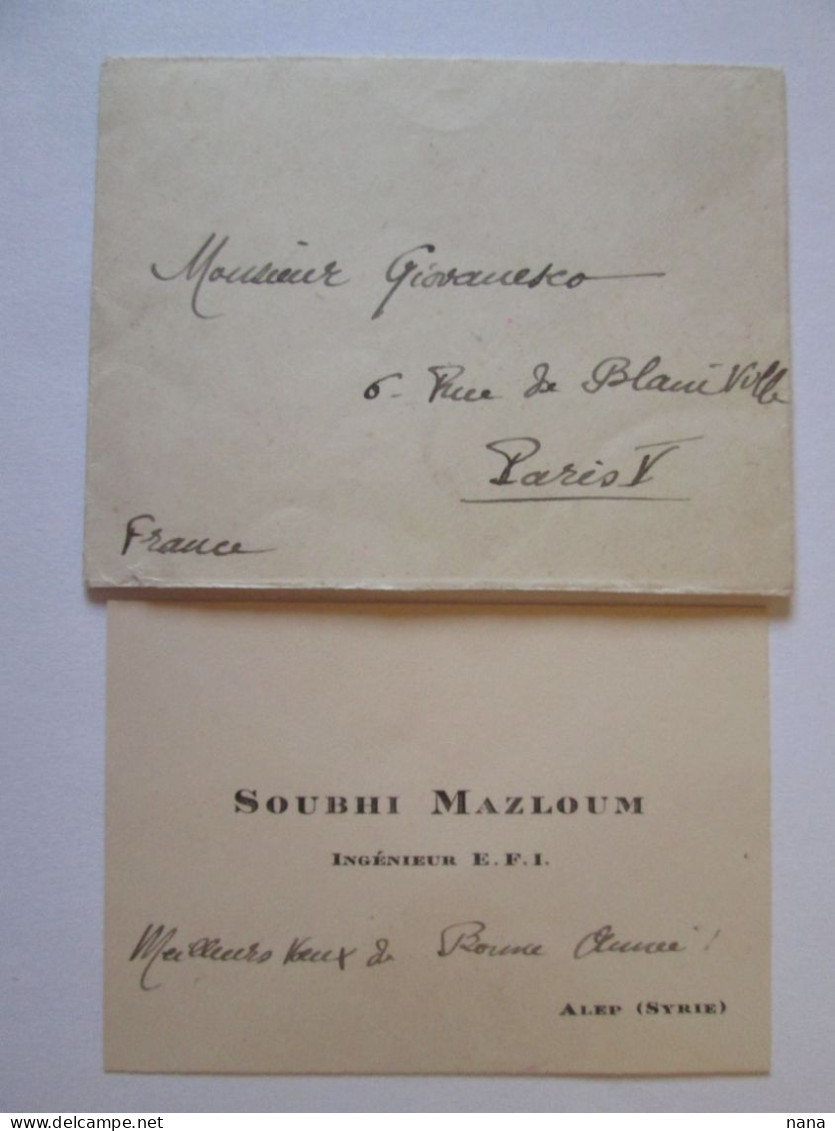 Monsieur Giovanesco
6 - Rue de Blainville
Paris V
France
SOUBHI MAZLOUM
INGÉNIEUR E.F.I.
Meilleurs Vœux de Bonne Année!
ALEP (SYRIE)
nana